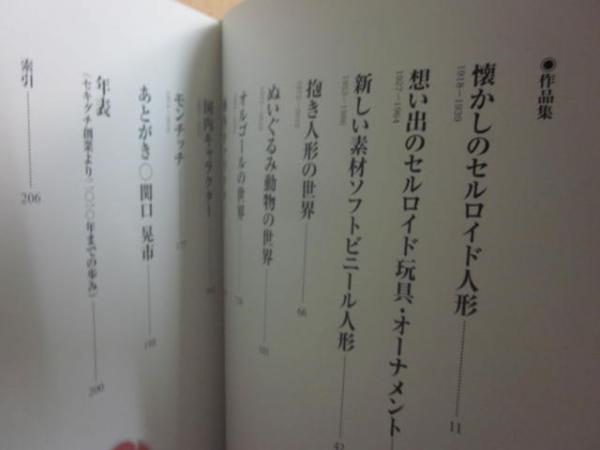 ◉作品集
懐かしのセルロイド人形 11
1918－1939
想い出のセルロイド玩具・オーナメント
1927－1964
新しい素材ソフトビニール人形 42
抱き人形の世界 66
ぬいぐるみ動物の世界 101
オルゴールの世界
国内キャラクター
モンチッチ 177
あとがき◯関口 晃市 198
年表 200
（セキグチ創業より二〇一〇年までの歩み）
索引 206